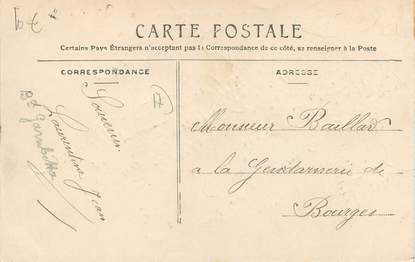 10 €
CARTE POSTALE
Certains Pays Étrangers n'acceptant pas la Correspondance de ce côté, se renseigner à la Poste
CORRESPONDANCE
ADRESSE
Souvenir
Laurentine Jean
Bd Gambetta
Monsieur Baillard
a la Gendarmerie de
Bourges